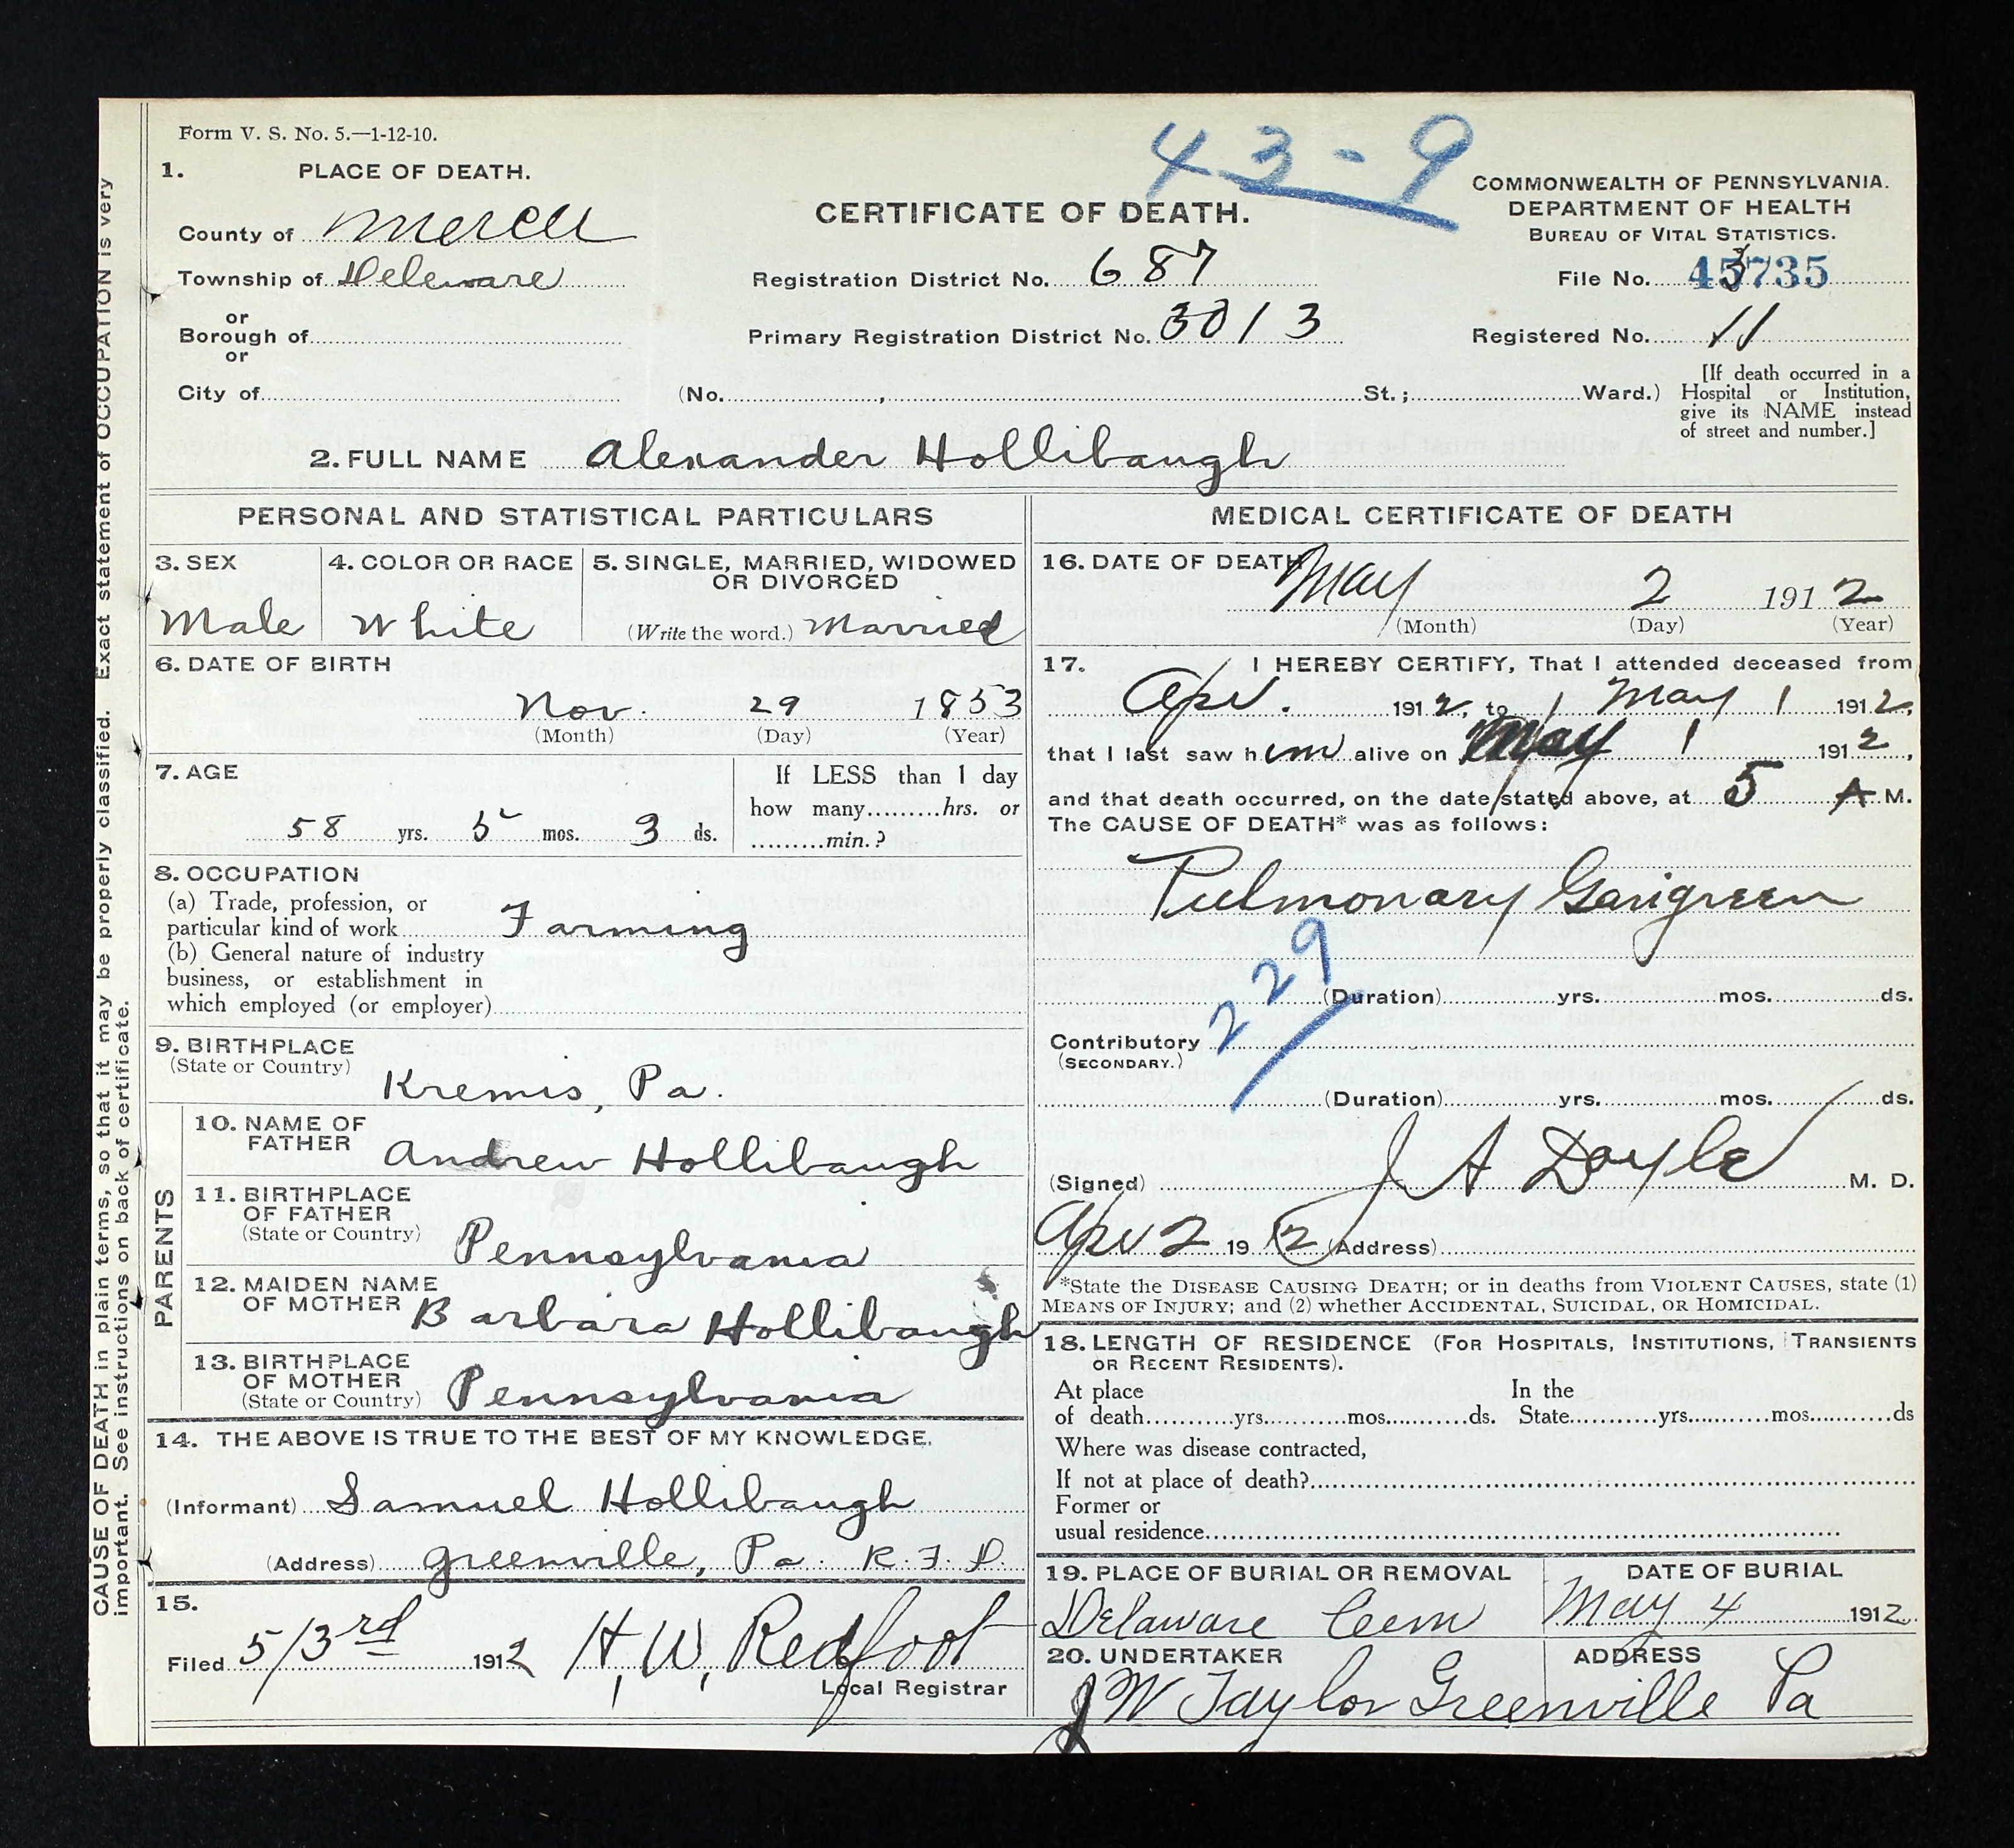 Form V. S. No. 5.—1-12-10.
43-9
1. PLACE OF DEATH.
County of Mercer
Township of Deleware
or
Borough of
or
City of
CERTIFICATE OF DEATH.
Registration District No. 687
Primary Registration District No. 3013
(No. , St.; Ward.)
COMMONWEALTH OF PENNSYLVANIA.
DEPARTMENT OF HEALTH
BUREAU OF VITAL STATISTICS.
File No. 45735
Registered No. 11
[If death occurred in a
Hospital or Institution,
give its NAME instead
of street and number.]
2. FULL NAME Alexander Hollibaugh
PERSONAL AND STATISTICAL PARTICULARS
3. SEX
Male
4. COLOR OR RACE
White
5. SINGLE, MARRIED, WIDOWED
OR DIVORCED
(Write the word.) Married
6. DATE OF BIRTH
Nov. 29 1853
(Month) (Day) (Year)
7. AGE
58 yrs. 5 mos. 3 ds.
If LESS than 1 day
how many hrs. or
min.?
8. OCCUPATION
(a) Trade, profession, or
particular kind of work Farming
(b) General nature of industry
business, or establishment in
which employed (or employer)
9. BIRTHPLACE
(State or Country)
Kremis, Pa.
PARENTS
10. NAME OF
FATHER Andrew Hollibaugh
11. BIRTHPLACE
OF FATHER
(State or Country) Pennsylvania
12. MAIDEN NAME
OF MOTHER Barbara Hollibaugh
13. BIRTHPLACE
OF MOTHER
(State or Country) Pennsylvania
14. THE ABOVE IS TRUE TO THE BEST OF MY KNOWLEDGE.
(Informant) Samuel Hollibaugh
(Address) Greenville, Pa. R.F.D.
15.
Filed 5/3rd 1912 H. W. Redfoot
Local Registrar
MEDICAL CERTIFICATE OF DEATH
16. DATE OF DEATH
May 2 1912
(Month) (Day) (Year)
17. I HEREBY CERTIFY, That I attended deceased from
Apr. 1912, to May 1 1912,
that I last saw him alive on May 1 1912,
and that death occurred, on the date stated above, at 5 A M.
The CAUSE OF DEATH* was as follows:
Pulmonary Gangreen
229
(Duration) yrs. mos. ds.
Contributory
(SECONDARY.)
(Duration) yrs. mos. ds.
(Signed) J A Doyle M. D.
Apr 2 1912 (Address)
*State the DISEASE CAUSING DEATH; or in deaths from VIOLENT CAUSES, state (1)
MEANS OF INJURY; and (2) whether ACCIDENTAL, SUICIDAL, OR HOMICIDAL.
18. LENGTH OF RESIDENCE (FOR HOSPITALS, INSTITUTIONS, TRANSIENTS
OR RECENT RESIDENTS).
At place In the
of death yrs. mos. ds. State yrs. mos. ds
Where was disease contracted,
If not at place of death?
Former or
usual residence
19. PLACE OF BURIAL OR REMOVAL
Delaware Cem
DATE OF BURIAL
May 4 1912
20. UNDERTAKER ADDRESS
J W Taylor Greenville Pa
CAUSE OF DEATH in plain terms, so that it may be properly classified. Exact statement of OCCUPATION is very
important. See instructions on back of certificate.